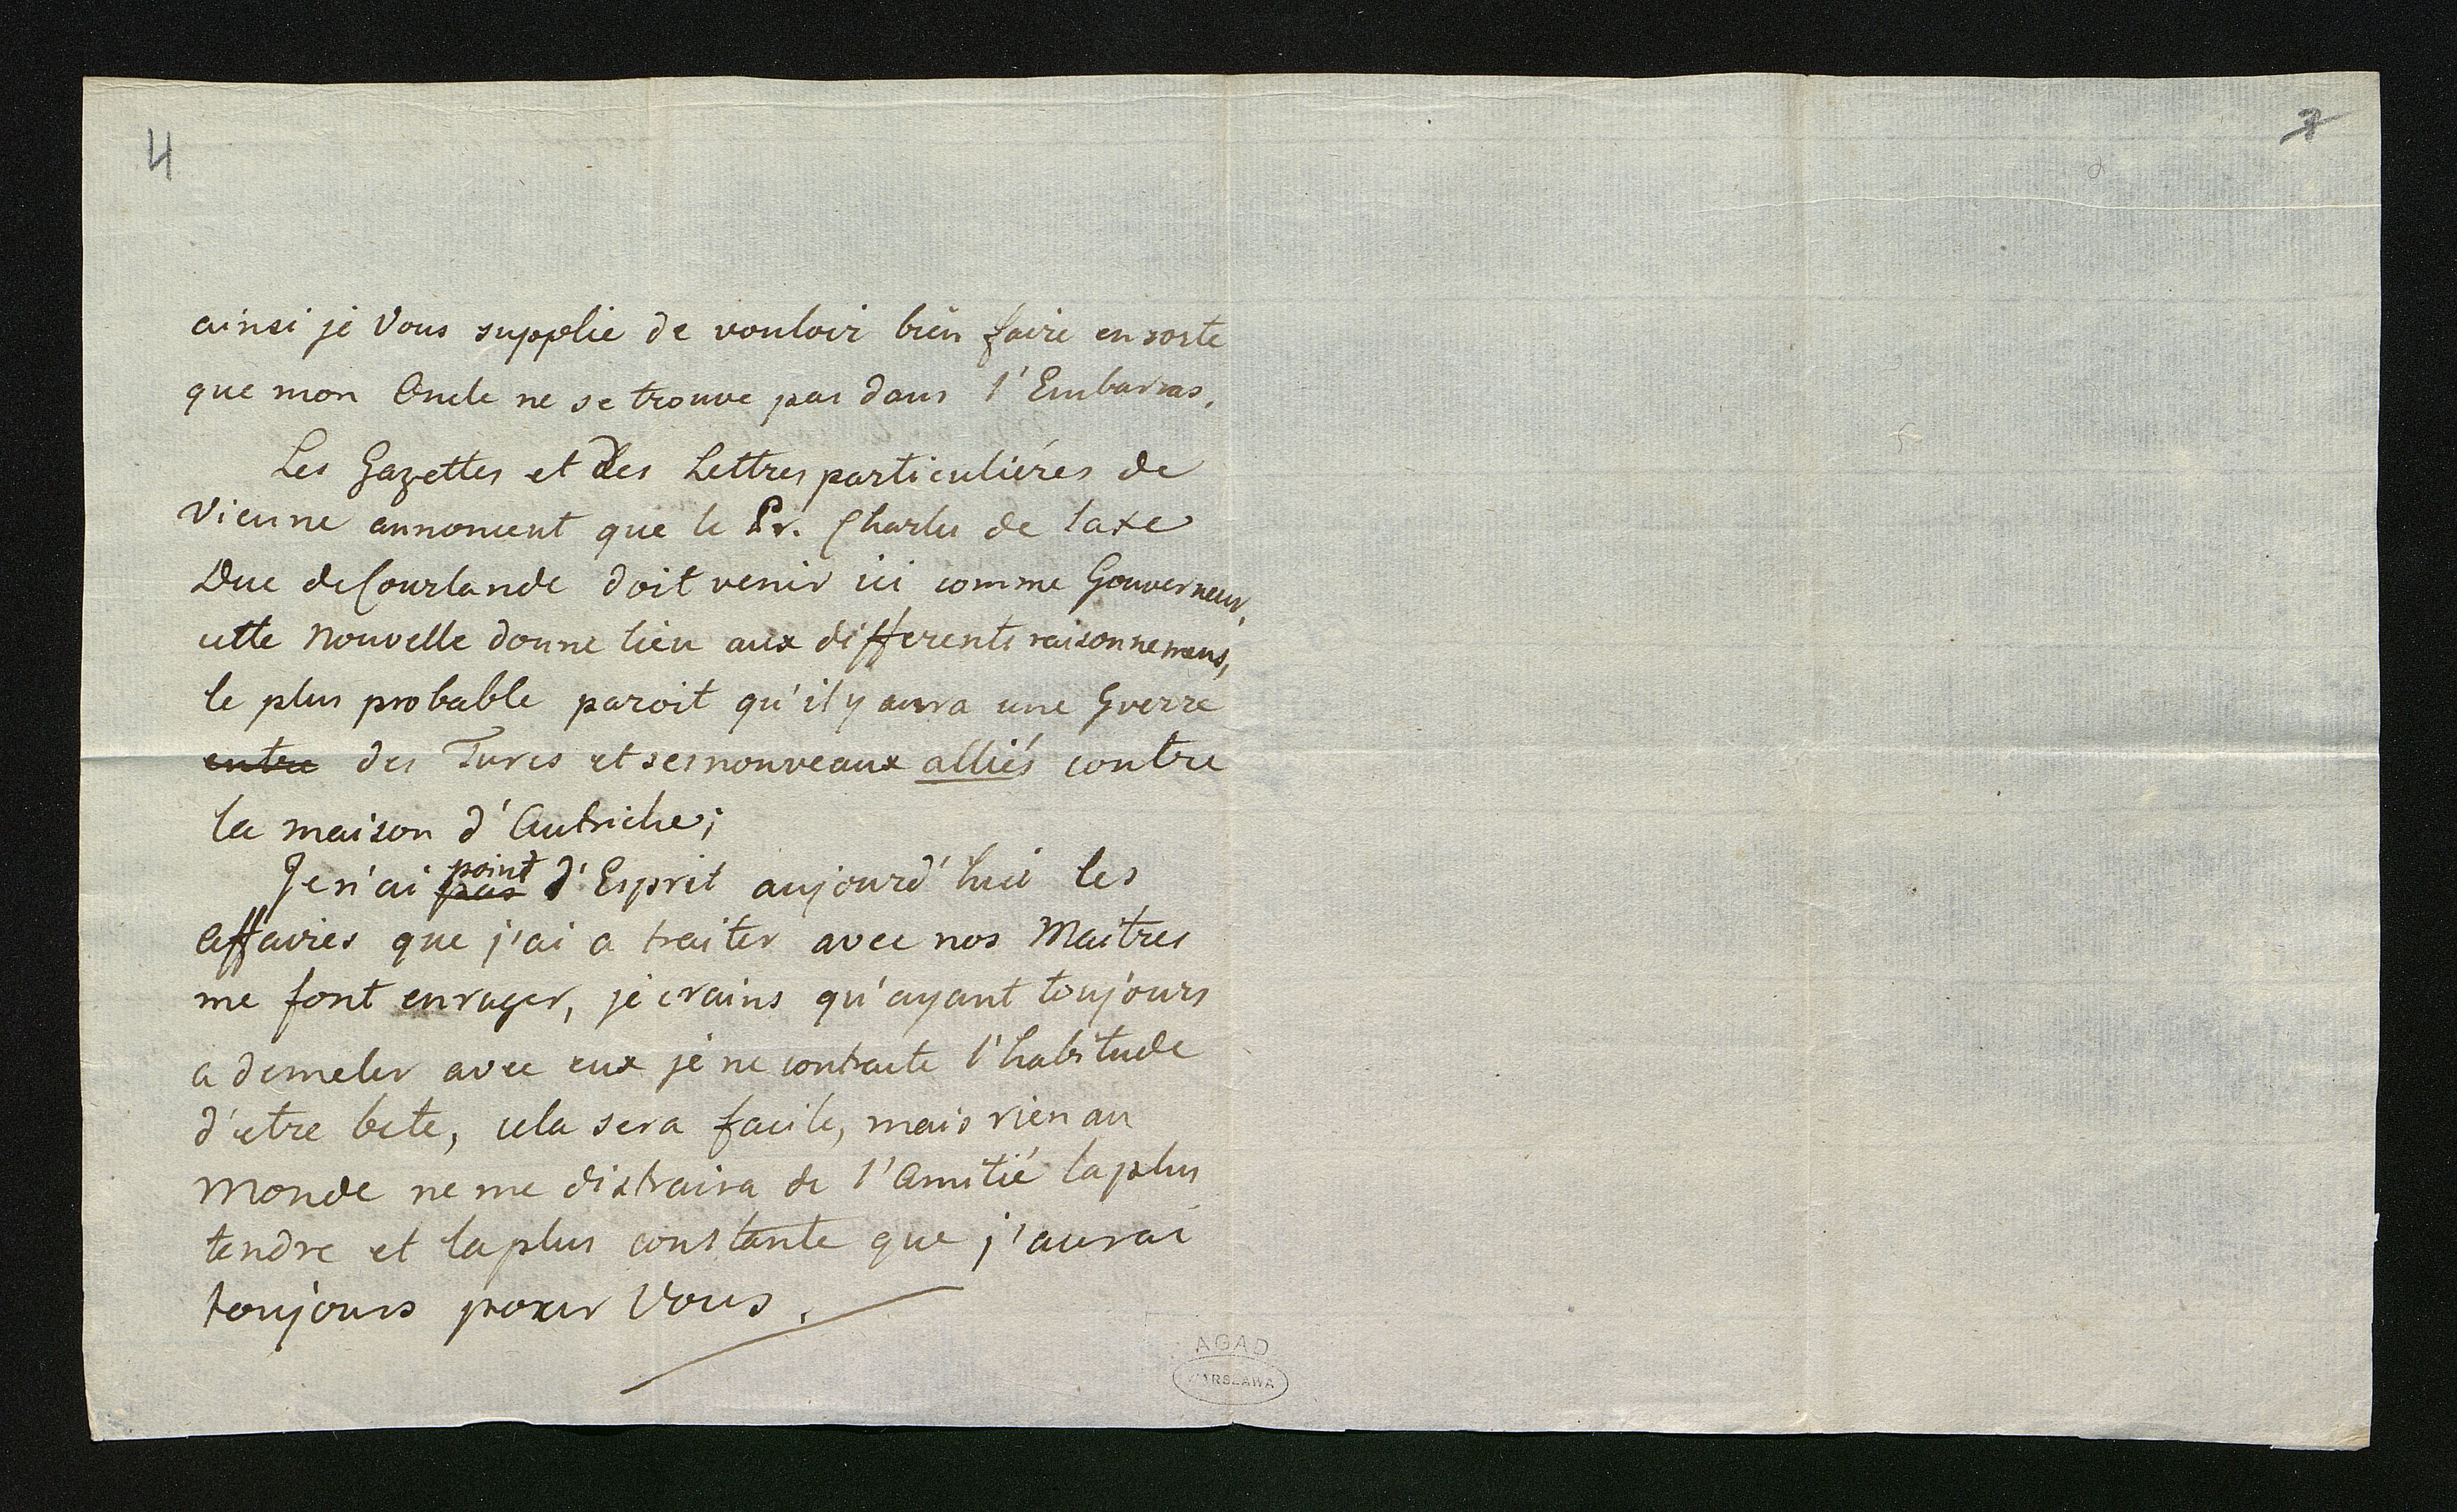 4
7
ainsi je Vous supplie de vouloir bien faire ensorte
que mon Oncle ne se trouve pas dans l'Embarras,
Les Gazettes et des Lettres particuliéres de
Vienne annoncent que le Pr. Charles de Saxe
Duc de Courlande doit venir ici comme Gouverneur,
cette Nouvelle donne lieu aux differents raisonnemens,
le plus probable paroit qu'il y aura une Guerre
entre des Turcs et ses nouveaux alliés contre
la maison d'Autriche;
Je n'ai pas point d'Esprit aujourd'hui les
Affaires que j'ai a traiter avec nos Maitres
me font enrager, je crains qu'ayant toujours
a demeler avec eux je ne contracte l'habitude
d'etre bete, cela sera facile, mais rien au
Monde ne me distraira de l'Amitié la plus
tendre et la plus constante que j'aurai
toujours pour Vous.
AGAD
WARSZAWA